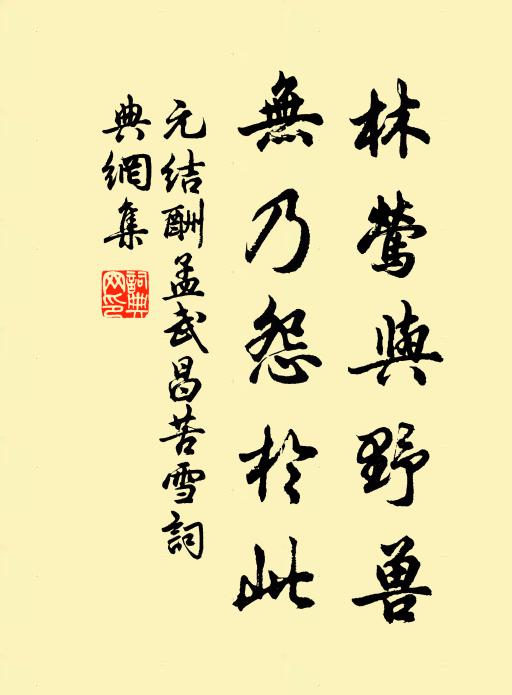 林鶯與野兽
無乃怨於此
元结酬孟武昌苦雪詞
典網集
詞典网印